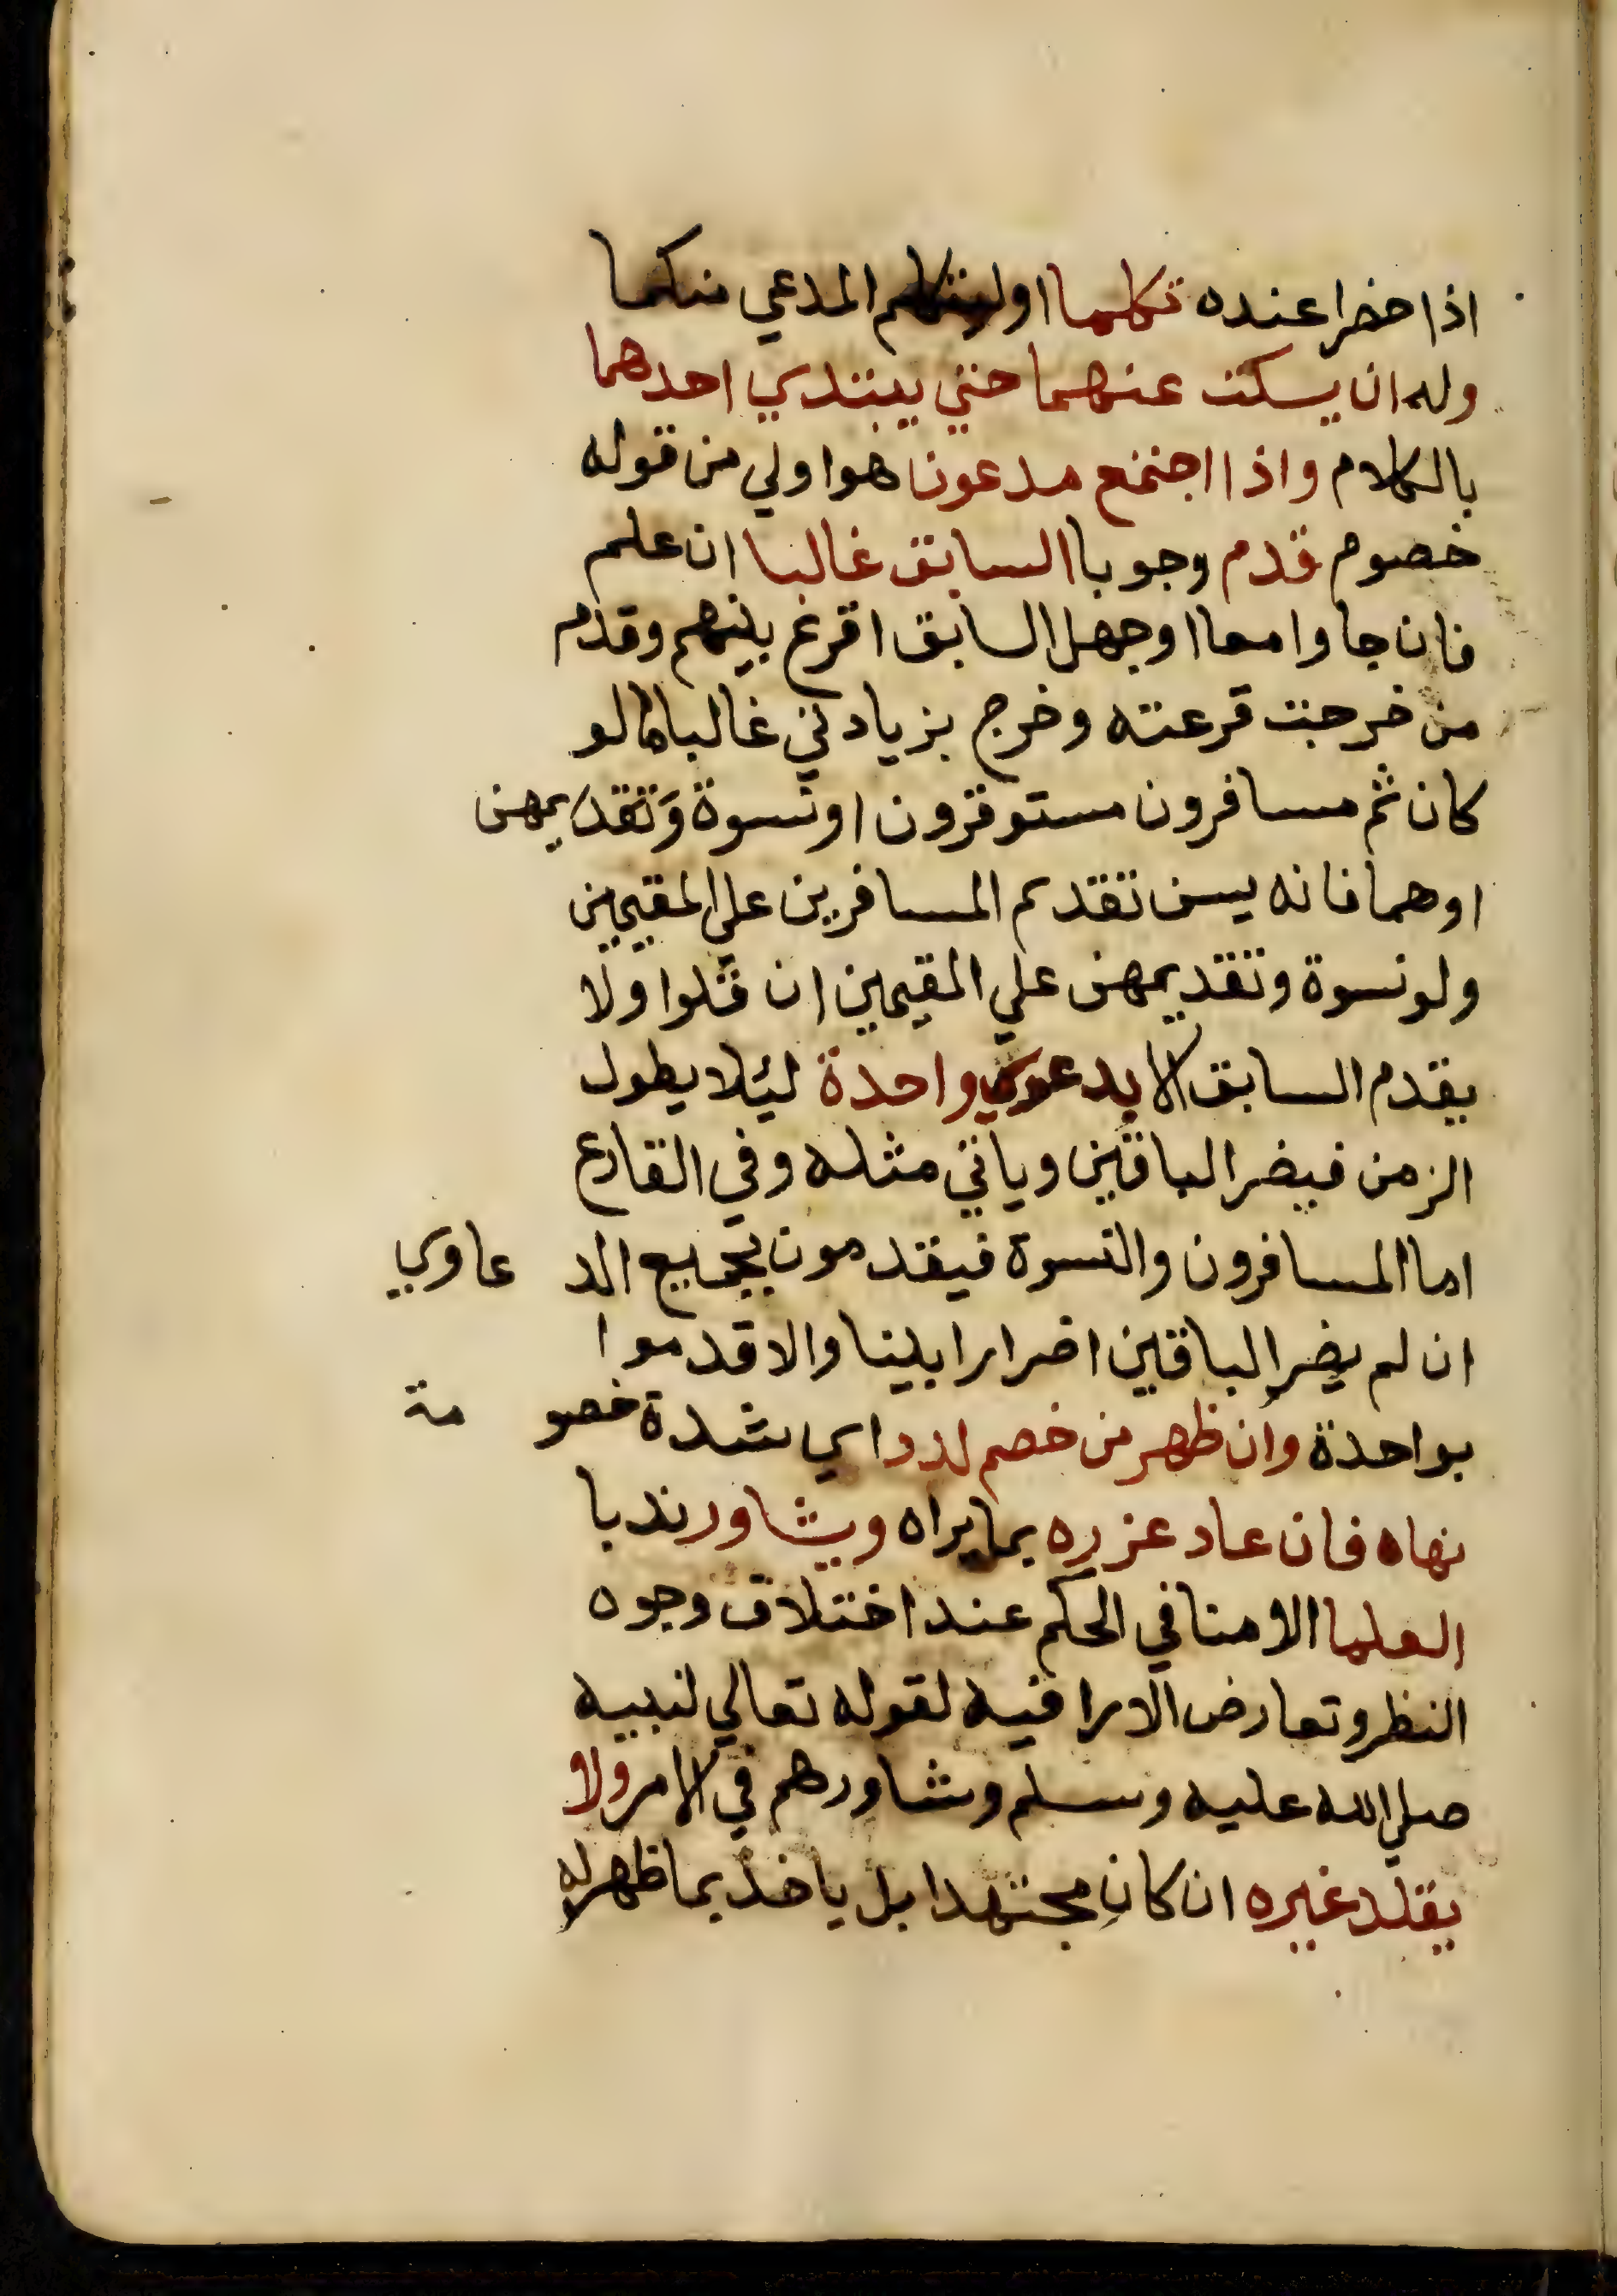 اذا حضرا عنده تكلما او ليتكلم المدعي منكما
وله ان يسكت عنهما حتي يبتدي احدهما
بالكلام واذا اجتمع مدعون هو اولي من قوله
خصوم قدم وجوبا السابق غالبا ان علم
فان جاوا معا او جهل السابق اقرع بينهم وقدم
من خرجت قرعته وخرج بزيادتي غالبا مالو
كان ثم مسافرون مستوفزون او نسوة وَتقديمهن
اوهما فانه يسن تقديم المسافرين علي المقيمين
ولو نسوة وتقديمهن علي المقيمين ان قلوا ولا
يقدم السابق الا بدعوي واحدة ليئلا يطول
الزمن فيضر الباقين وياتي مثله وفي القارع
اما المسافرون والنسوة فيقدمون بجميع الد عاوي
ان لم يضر الباقين اضرارا بينا والا قدموا
بواحدة وان ظهر من خصم لدد اي شدة خصو مة
نهاه فان عاد عزره بما يراه ويشاور ندبا
العلما الامنا في الحكم عند اختلاف وجوه
النظر وتعارض الارا فيه لقوله تعالي لنبيه
صلي الله عليه وسلم وشاورهم في الامر ولا
يقلد غيره ان كان مجتهدا بل ياخذ بما ظهر له